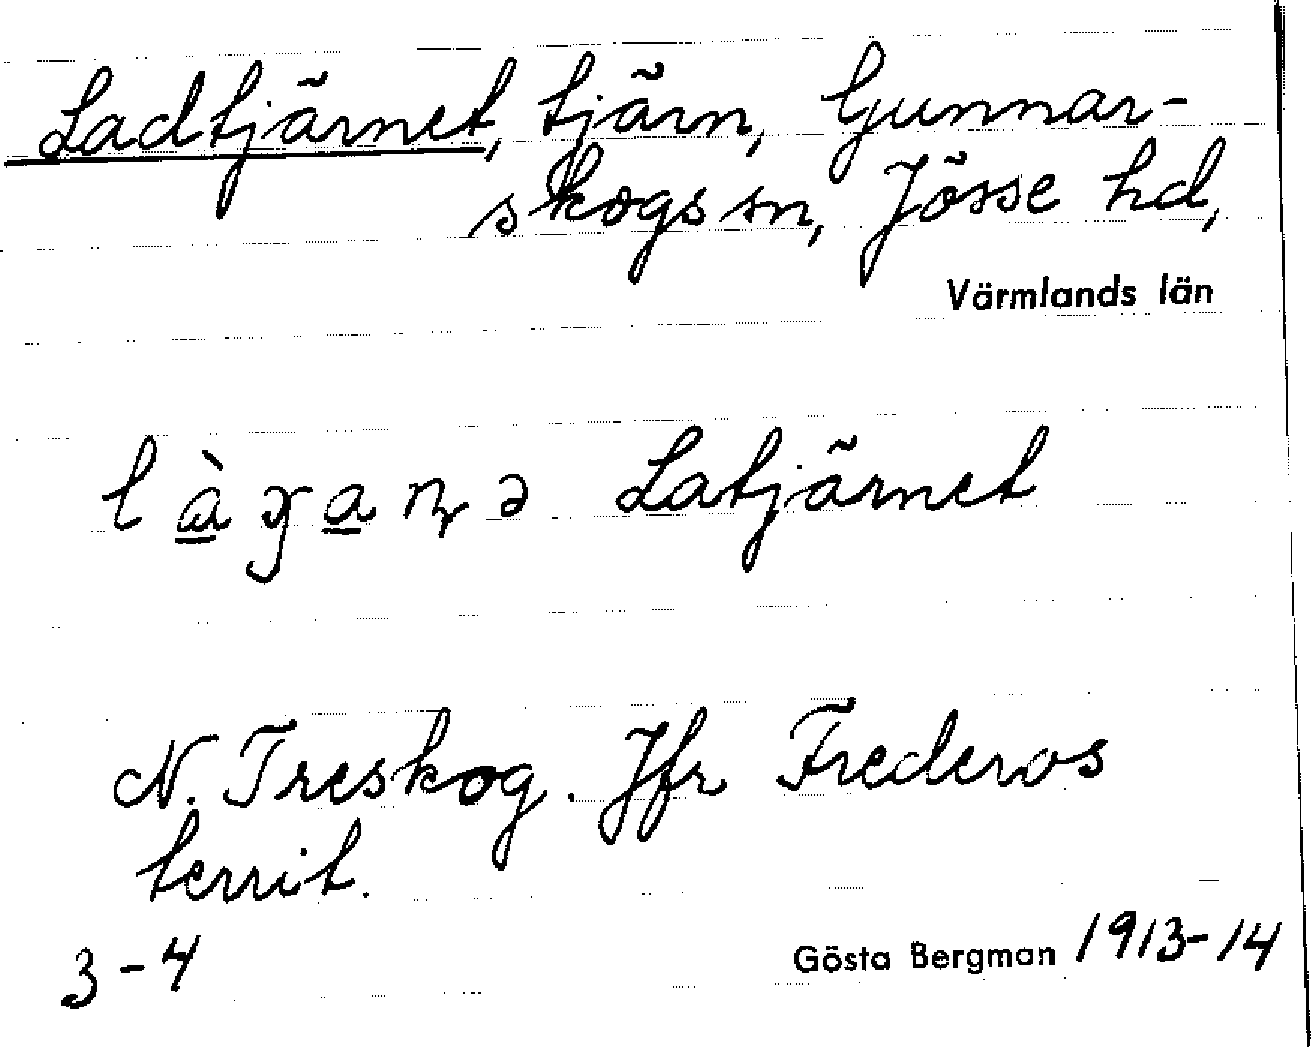 Ladtjärnet, tjärn, Gunnar-
skogs sn, Jösse hd,
Värmlands län
Latjärnet
N. Treskog. Jfr Frederos
territ.
3-4
Gösta Bergman 1913-14